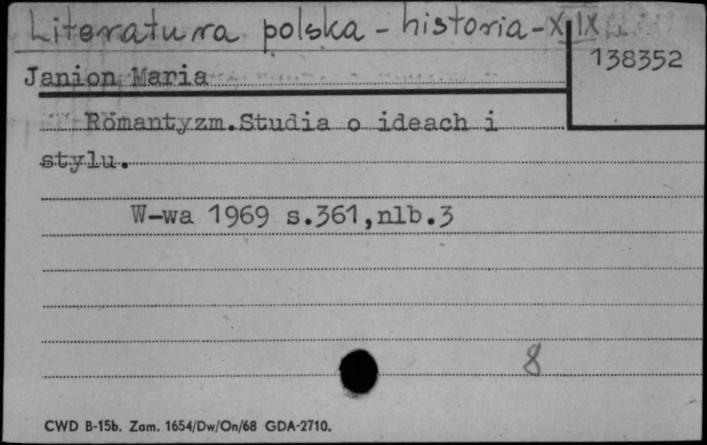 Literatura polska - historia - XIX w.
138352
Janion Maria
Romantyzm.Studia o ideach i
stylu.
W-wa 1969 s.361,nlb.3
8
CWD B-15b. Zam. 1654/Dw/On/68 GDA-2710.